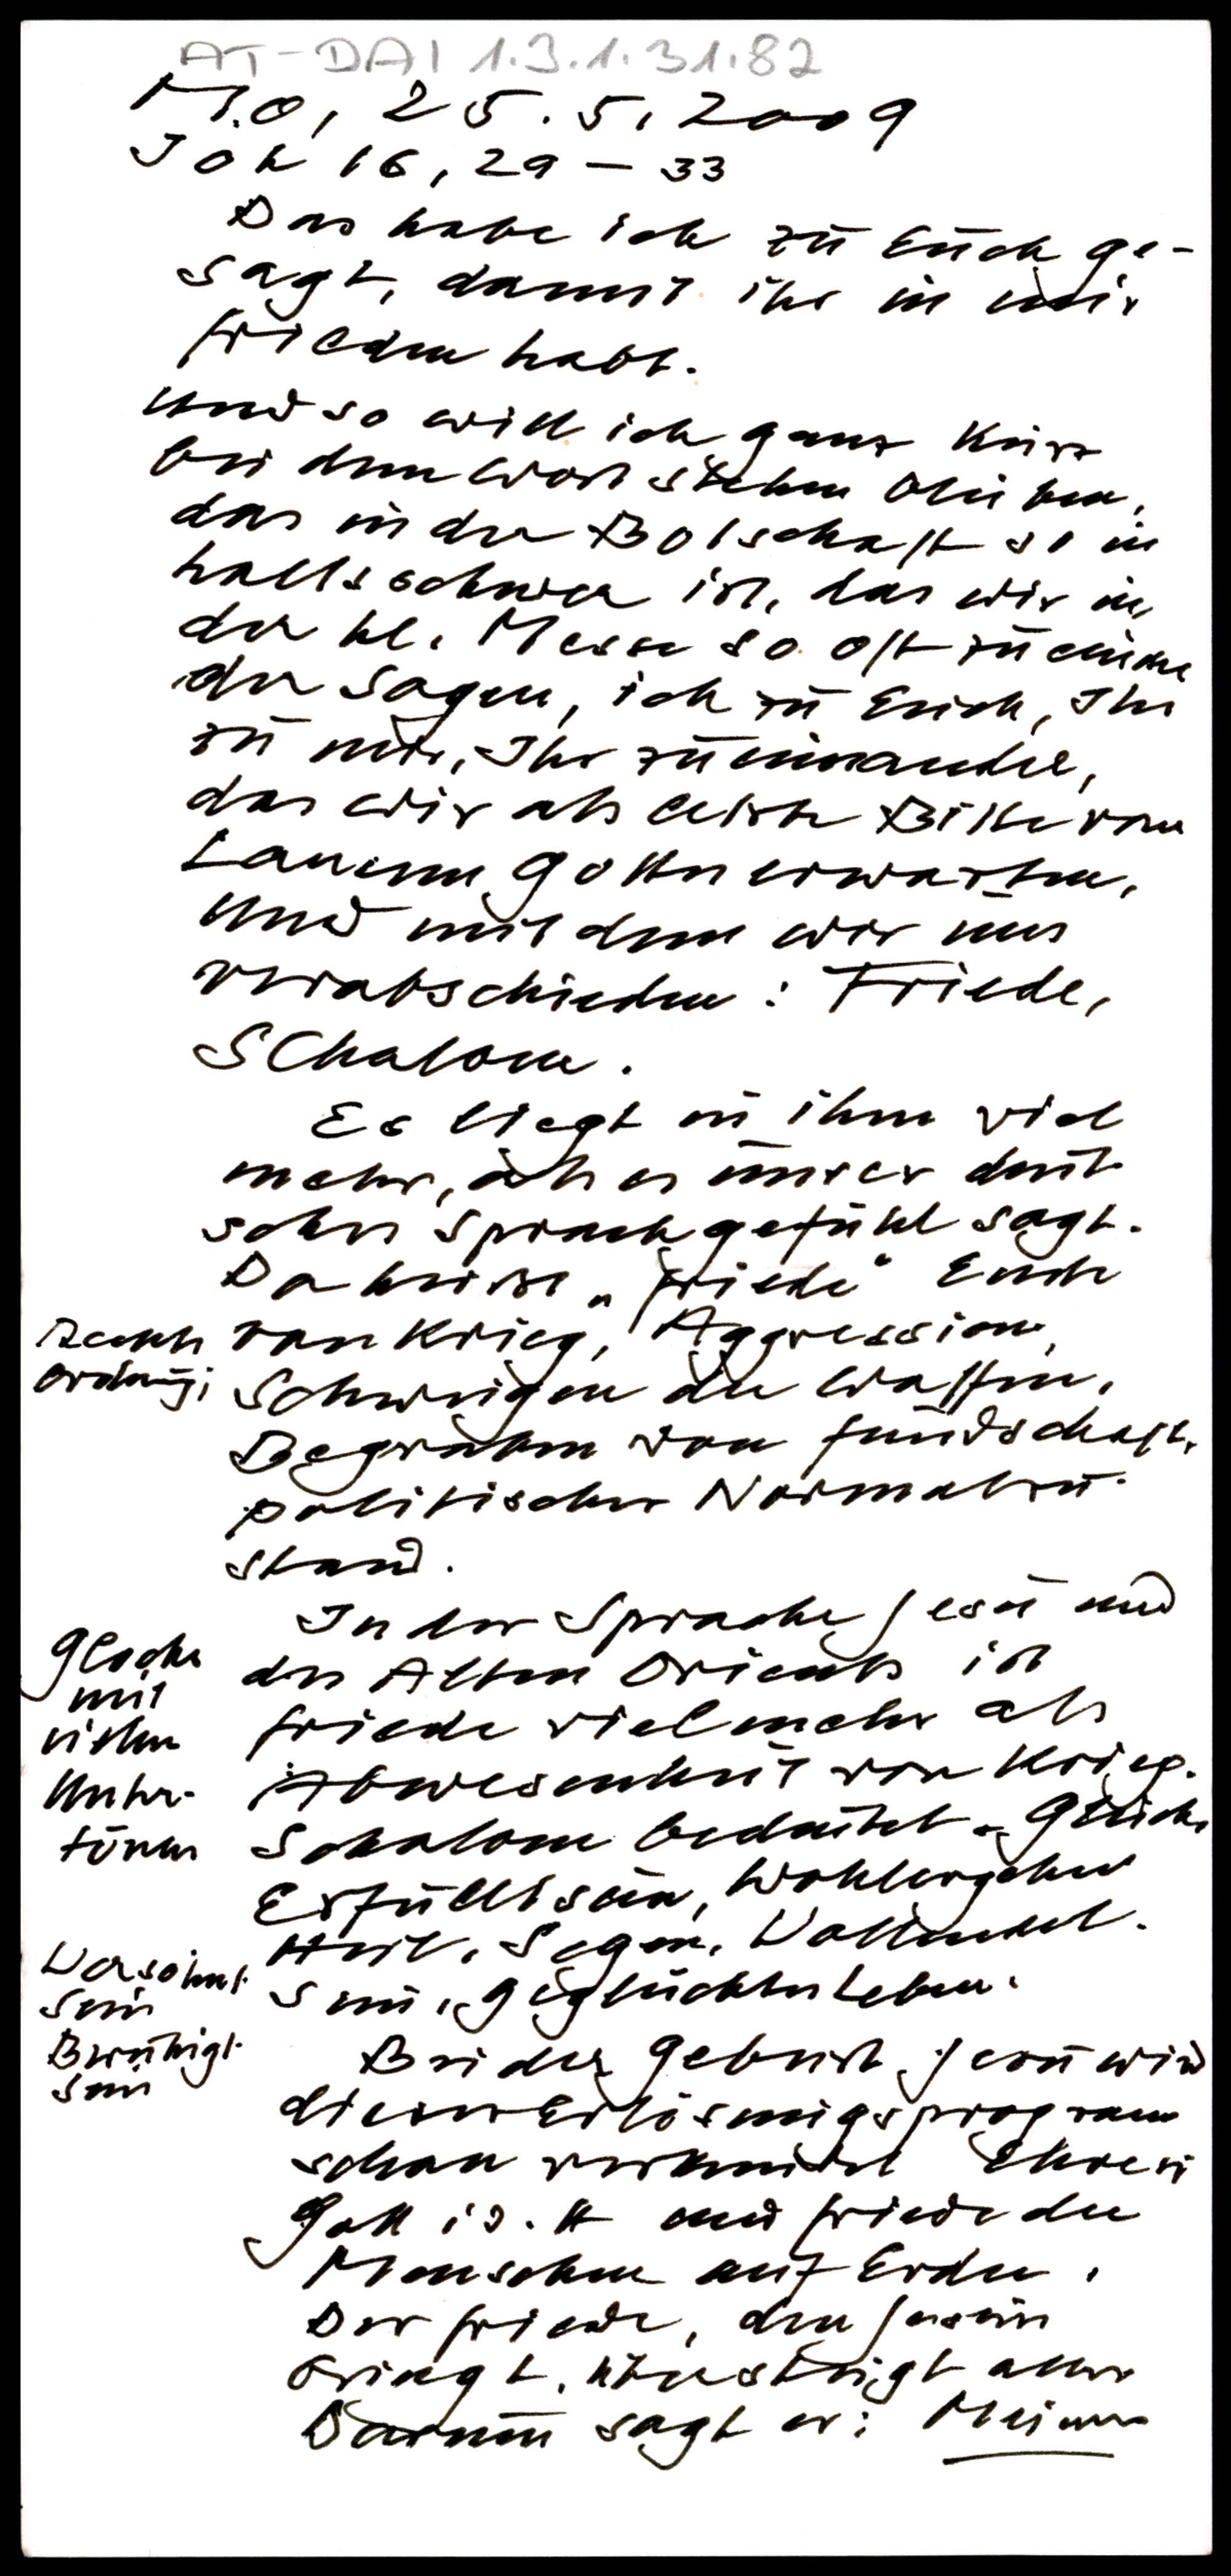 AT-DAI 1.3.1.31.82
Mo, 25.5.2009
Joh 16,29-33
Das habe ich zu Euch ge-
sagt, damit ihr in mir
Frieden habt.
Und so will ich ganz kurz
bei dem Wort stehen bleiben,
das in der Botschaft so in
haltsschwer ist, das wir in
der hl. Messe so oft zueinan
der sagen, ich zu Euch, Ihr
zu mir, Ihr zueinander,
das wir als letzte Bitte vom
Lamm Gottes erwarten,
und mit dem wir uns
verabschieden: Friede,
SChalom.
Es liegt in ihm viel
mehr, als es unser deut
sches Sprachgefühl sagt.
Da heißt „Friede" Ende
von Krieg, Aggression,
Rechts
ordnung;
Schweigen der Waffen,
Begraben von Feindschaft,
politischer Normalzu-
stand.
In der Sprache Jesu und
des Alten Orients ist
Friede viel mehr als
Abwesenheit von Krieg.
Schalom bedeutet Glück,
Erfülltsein, Wohlergehen
Heil, Segen, Vollendet-
sein, geglücktes Leben.
Glocke
mit
vielen
Unter-
tönen
Versöhnt
sein
Beruhigt
sein
Bei der Geburt Jesu wird
dieses Erlösungsprogramm
schon verkündet Ehre sei
Gott i.d.H und Friede den
Menschen auf Erden.
Der Friede, den Jesus
bringt, übersteigt alles
Darum sagt er: Meinen